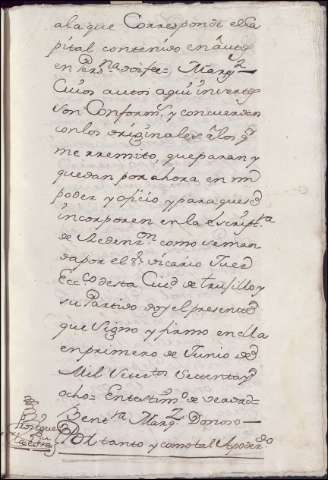 a la que Corresponde el Ca
pital contenido en autos
en
Cuios autos aqui insertos
son Conformes, y concuerdan
con los originales a los q.e
me rremito, que paran y
quedan por ahora en mi
poder y oficio y para que se
incorporen en la escript.a
de Reden.on como se man
da por el S.r Vicario Juez
Ecc.co desta Ciu.d de truxillo y
su Partido doy el presente
que signo y firmo en ella
en primero de Junio de
Mil Setec.tos Sesenta y
ocho = En testim.o de verdad =
Marq.z
Por tanto y como tal Apoder.do